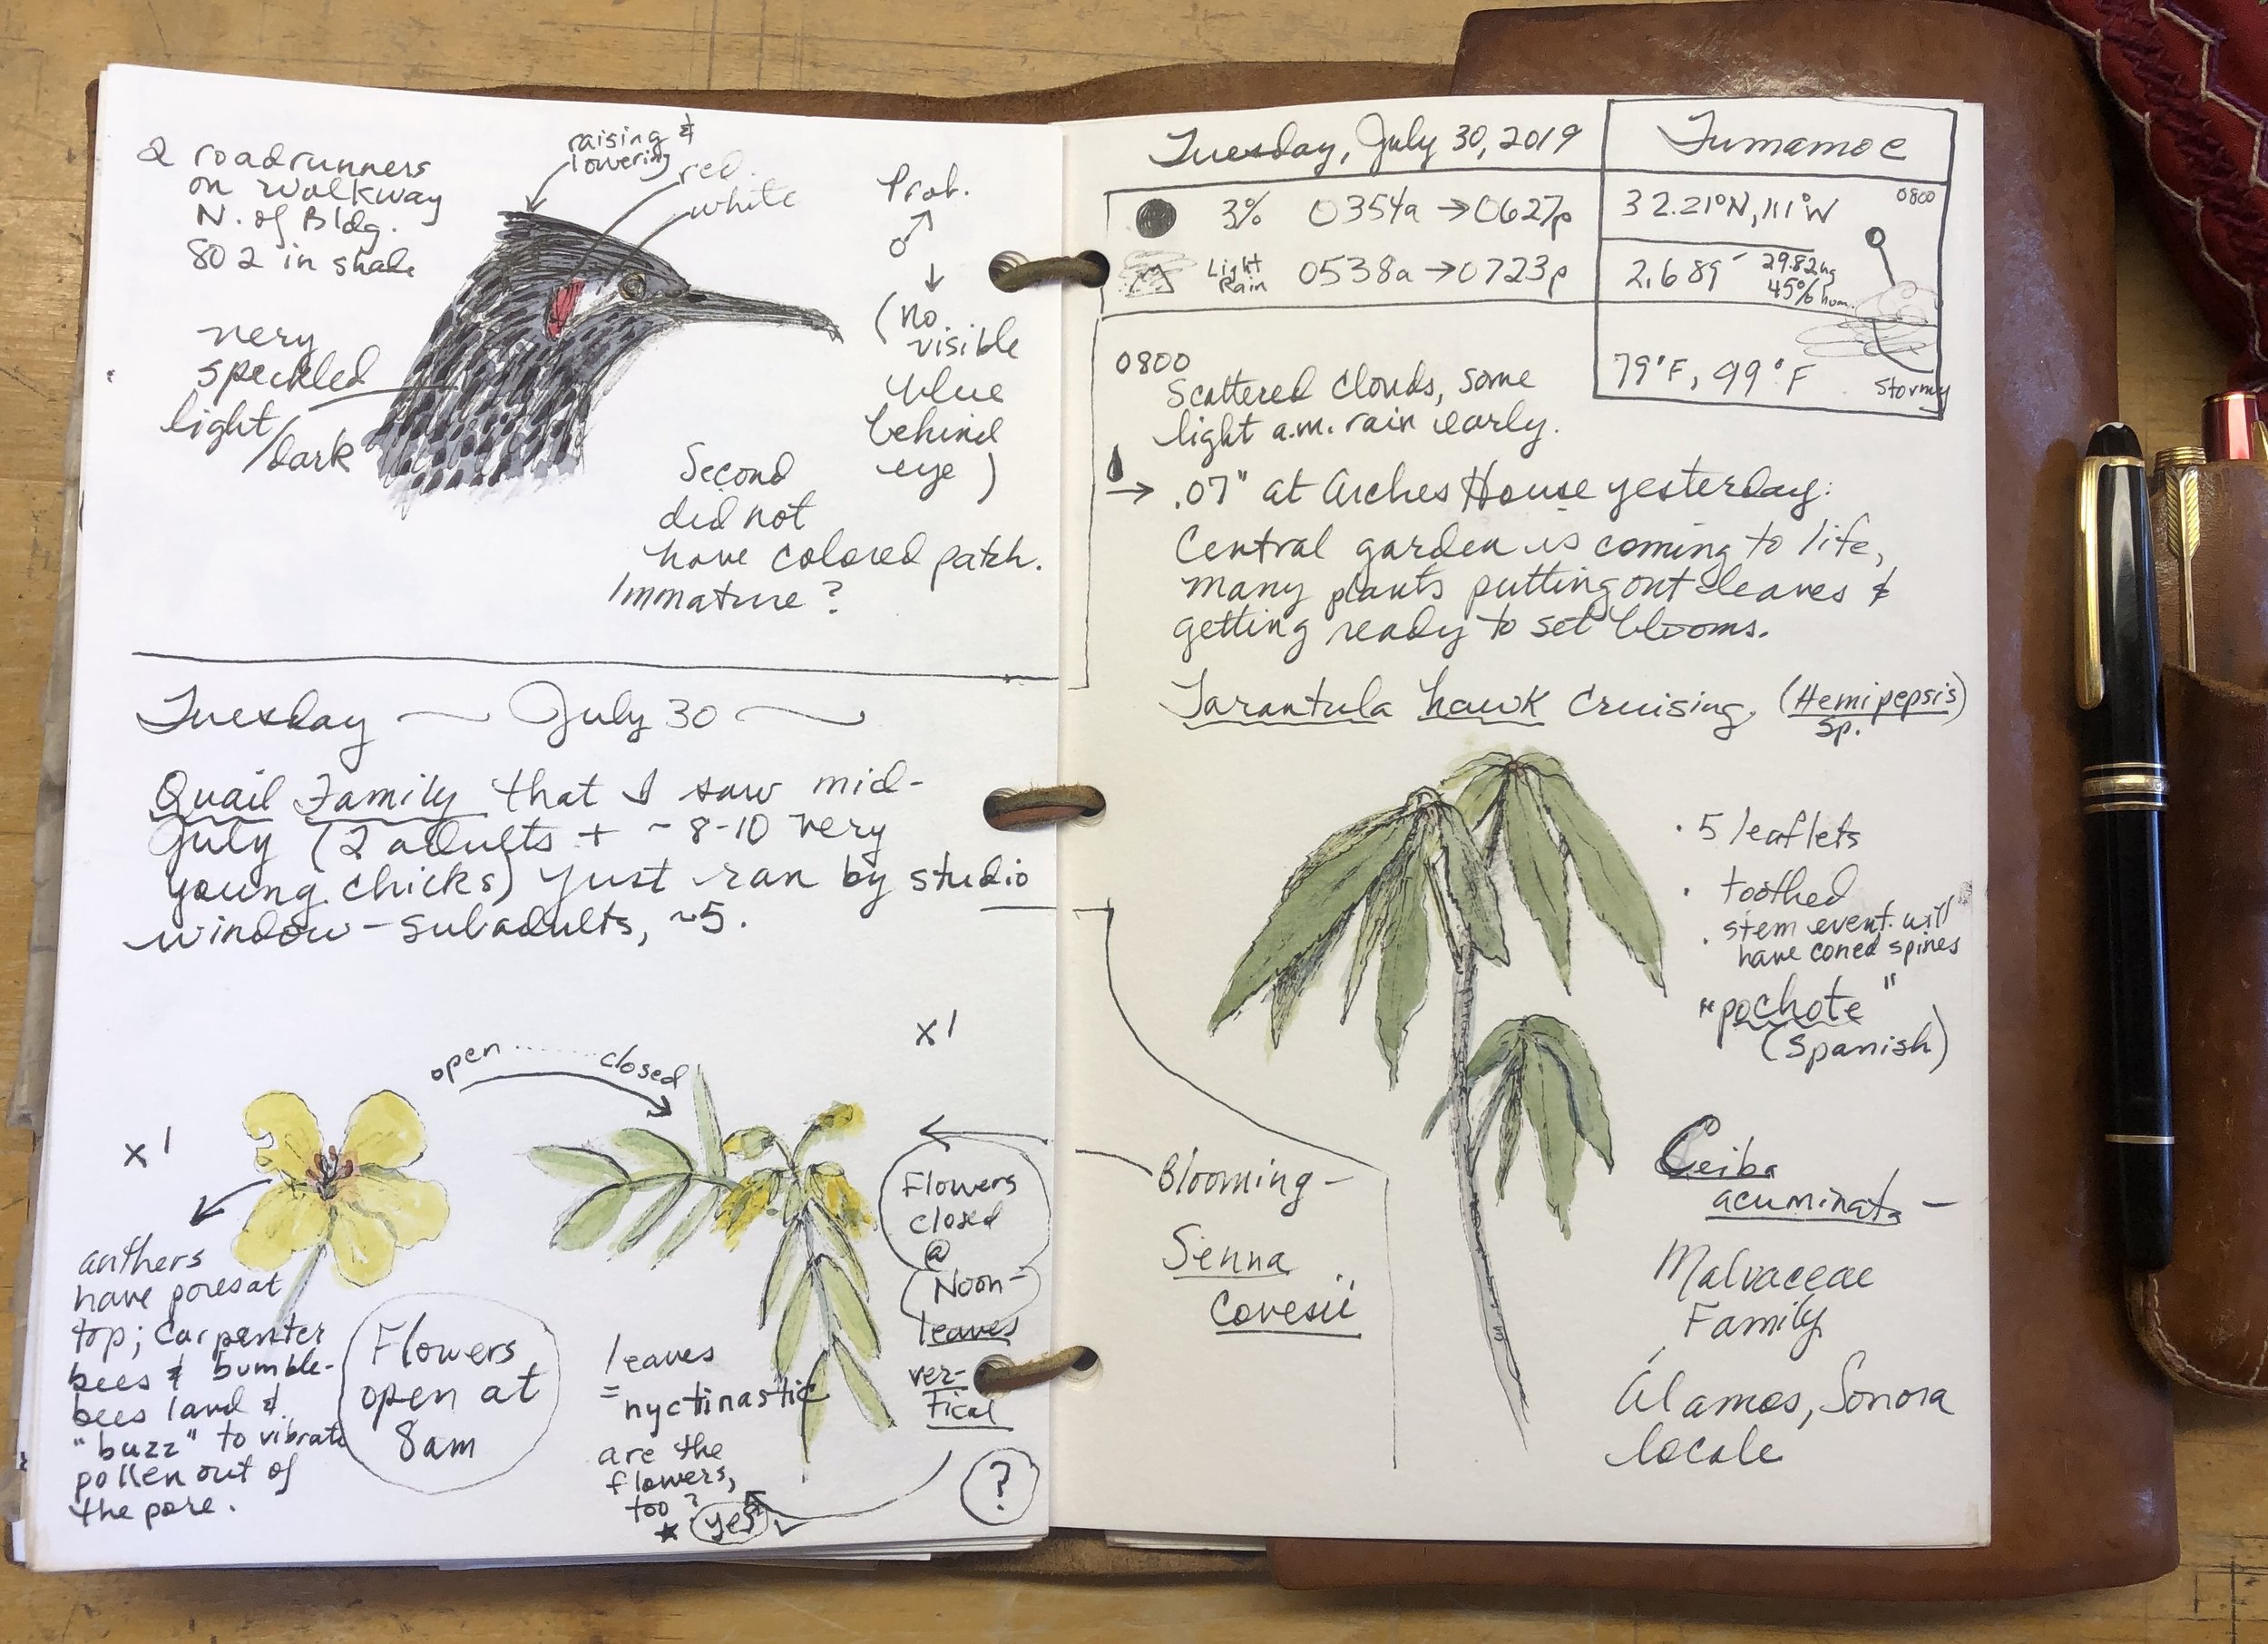 2 roadrunners
on walkway
N. of Bldg.
802 in shade
raising &
lowering
red
white
Prob.
♂
↓
(no
visible
blue
behind
eye)
very
speckled
light/
dark
Second
did not
have colored patch.
Immature?
Tuesday ~ July 30 ~
Quail Family that I saw mid-
July (2 adults + ~8-10 very
young chicks) just ran by studio
window - subadults, ~5.
x1
open ...... closed
x1
anthers
have pores at
top; carpenter
bees & bumble-
bees land &
"buzz" to vibrate
pollen out of
the pore.
Flowers
open at
8am
leaves
= nyctinastic
are the
flowers,
too?
★ yes ✓
Flowers
closed
@
Noon-
leaves
ver-
tical
?
Tuesday, July 30, 2019
Tumamoc
3% 0354a → 0627p
Light
Rain
0538a → 0723p
32.21°N, 111°W
0800
2,689'
29.82hg
45% hum.
79°F, 99°F
stormy
0800
Scattered clouds, some
light a.m. rain early.
→ .07" at Arches House yesterday:
Central garden is coming to life,
many plants putting out leaves &
getting ready to set blooms.
Tarantula hawk cruising. (Hemipepsis)
sp.
· 5 leaflets
· toothed
· stem event. will
have coned spines
"pochote"
(Spanish)
Ceiba
acuminata -
Malvaceae
Family
Álamos, Sonora
locale
Blooming -
Senna
covesii